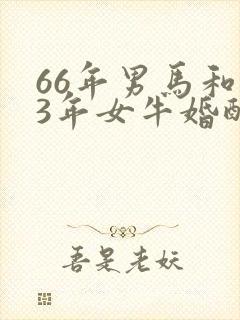 66年男馬和
3年女牛婚配
吾是老妖